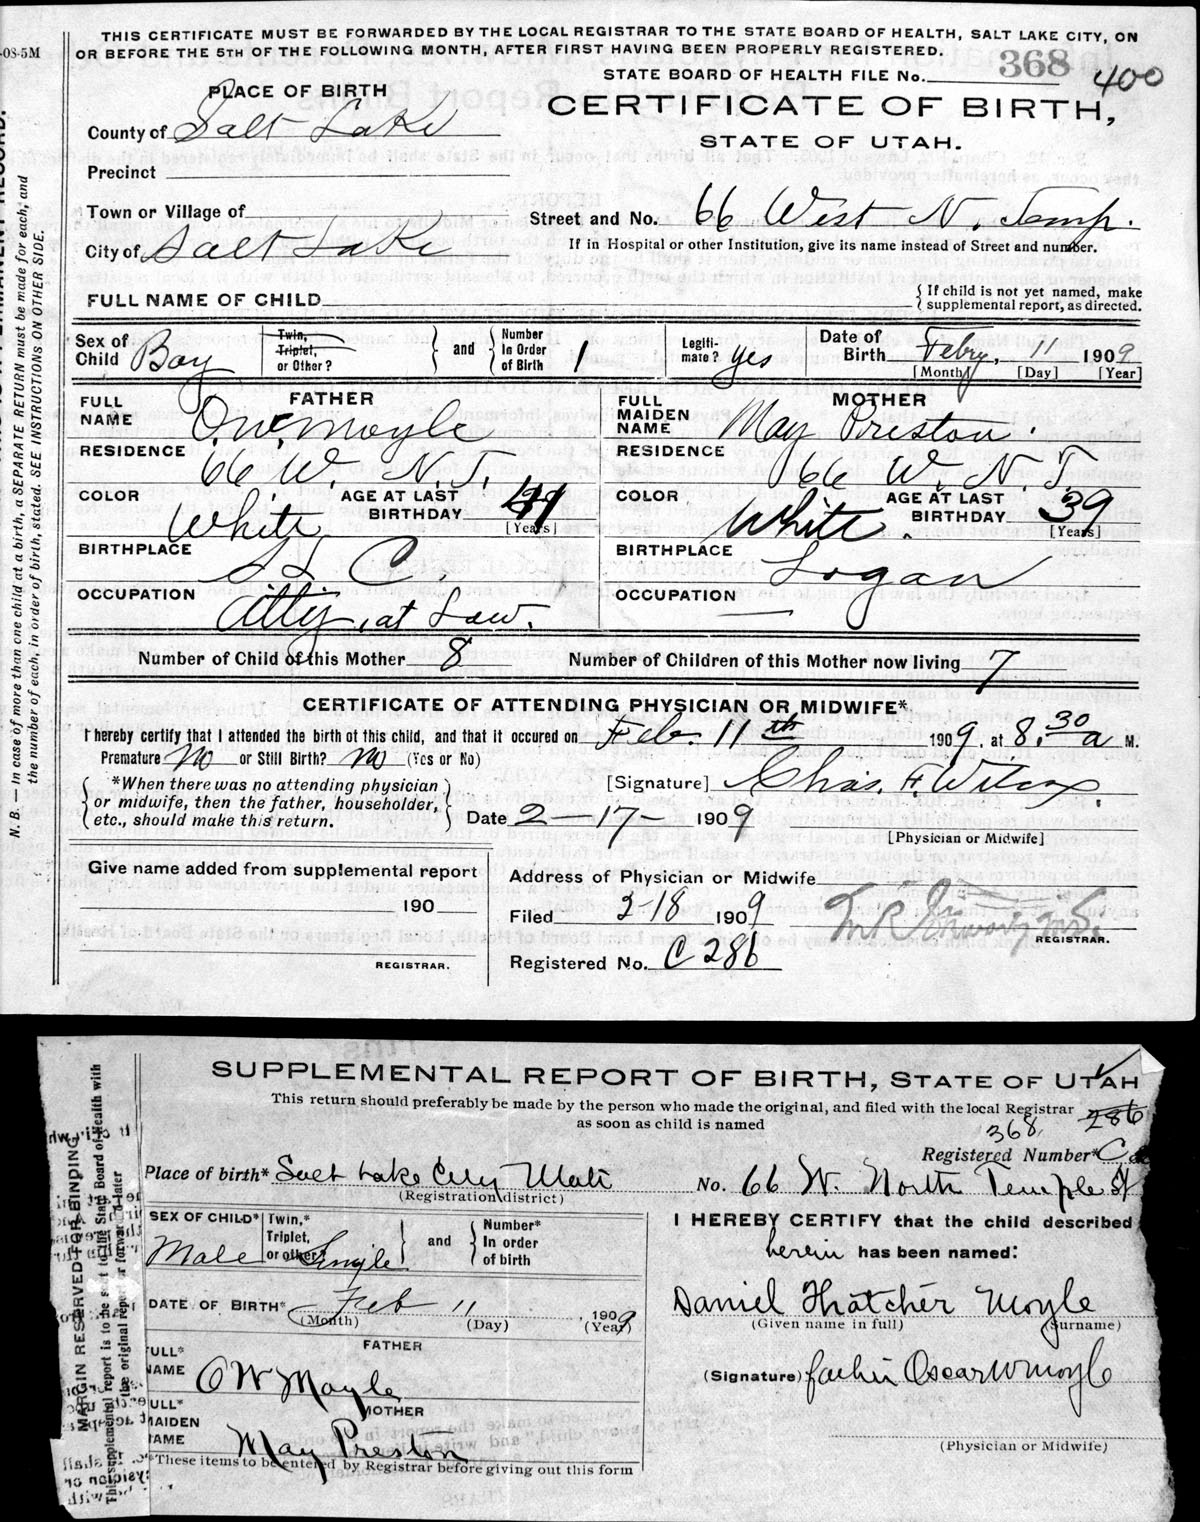 THIS CERTIFICATE MUST BE FORWARDED BY THE LOCAL REGISTRAR TO THE STATE BOARD OF HEALTH, SALT LAKE CITY, ON
-08-5M
OR BEFORE THE 5TH OF THE FOLLOWING MONTH, AFTER FIRST HAVING BEEN PROPERLY REGISTERED.
STATE BOARD OF HEALTH FILE No. 368 400
PLACE OF BIRTH
CERTIFICATE OF BIRTH,
County of Salt Lake
STATE OF UTAH.
Precinct
Town or Village of
Street and No. 66 West N. Temp.
City of Salt Lake
If in Hospital or other Institution, give its name instead of Street and number.
FULL NAME OF CHILD
{ If child is not yet named, make
supplemental report, as directed.
Sex of Child Boy
Twin, Triplet, or Other?
and
Number In Order of Birth 1
Legiti-mate? yes
Date of Birth Febry. 11 1909
[Month] [Day] [Year]
FATHER
FULL NAME O.W. Moyle
MOTHER
FULL MAIDEN NAME May Preston.
RESIDENCE 66 W. N. T.
RESIDENCE 66 W. N. T.
COLOR White
AGE AT LAST BIRTHDAY 41 [Years]
COLOR White.
AGE AT LAST BIRTHDAY 39 [Years]
BIRTHPLACE S L C.
BIRTHPLACE Logan
OCCUPATION Atty. at Law.
OCCUPATION —
Number of Child of this Mother 8
Number of Children of this Mother now living 7
CERTIFICATE OF ATTENDING PHYSICIAN OR MIDWIFE*
I hereby certify that I attended the birth of this child, and that it occured on Feb. 11th 1909, at 8.30 a M.
Premature No or Still Birth? No (Yes or No)
*When there was no attending physician
or midwife, then the father, householder,
etc., should make this return.
[Signature] Chas. F. Wilcox.
Date 2-17- 1909
[Physician or Midwife]
Give name added from supplemental report
190
REGISTRAR.
Address of Physician or Midwife
Filed 2-18 1909
REGISTRAR.
Registered No. C 286
N. B. — In case of more than one child at a birth, a SEPARATE RETURN must be made for each, and
the number of each, in order of birth, stated. SEE INSTRUCTIONS ON OTHER SIDE.
SUPPLEMENTAL REPORT OF BIRTH, STATE OF UTAH
This return should preferably be made by the person who made the original, and filed with the local Registrar
as soon as child is named
368 286
Registered Number* C
Place of birth* Salt Lake City Utah
(Registration district)
No. 66 W. North Temple St
SEX OF CHILD* Male
Twin,* Triplet, or other? Single
and
Number* In order of birth
I HEREBY CERTIFY that the child described
herein has been named:
DATE OF BIRTH* Feb 11, 1909
(Month) (Day) (Year)
Daniel Thatcher Moyle
(Given name in full) (Surname)
FATHER
FULL* NAME O W Moyle
(Signature) father Oscar W Moyle
MOTHER
FULL* MAIDEN NAME May Preston
(Physician or Midwife)
*These items to be entered by Registrar before giving out this form
MARGIN RESERVED FOR BINDING
This supplemental report is to the sent to the State Board of Health with
the original report or forwarded later